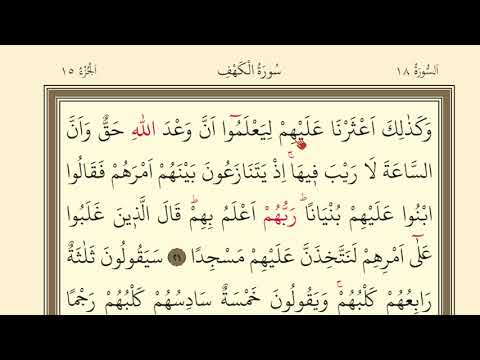 اَلسُّورَةُ ١٨ سُورَةُ الْكَهْفِ اَلْجُزْءُ ١٥
وَكَذٰلِكَ اَعْثَرْنَا عَلَيْهِمْ لِيَعْلَمُٓوا اَنَّ وَعْدَ اللّٰهِ حَقٌّ وَاَنَّ
السَّاعَةَ لَا رَيْبَ ف۪يهَاۚ اِذْ يَتَنَازَعُونَ بَيْنَهُمْ اَمْرَهُمْ فَقَالُوا
ابْنُوا عَلَيْهِمْ بُنْيَانًاۜ رَبُّهُمْ اَعْلَمُ بِهِمْۜ قَالَ الَّذ۪ينَ غَلَبُوا
عَلٰٓى اَمْرِهِمْ لَنَتَّخِذَنَّ عَلَيْهِمْ مَسْجِدًا ﴿٢١﴾ سَيَقُولُونَ ثَلٰثَةٌ
رَابِعُهُمْ كَلْبُهُمْۚ وَيَقُولُونَ خَمْسَةٌ سَادِسُهُمْ كَلْبُهُمْ رَجْمًا